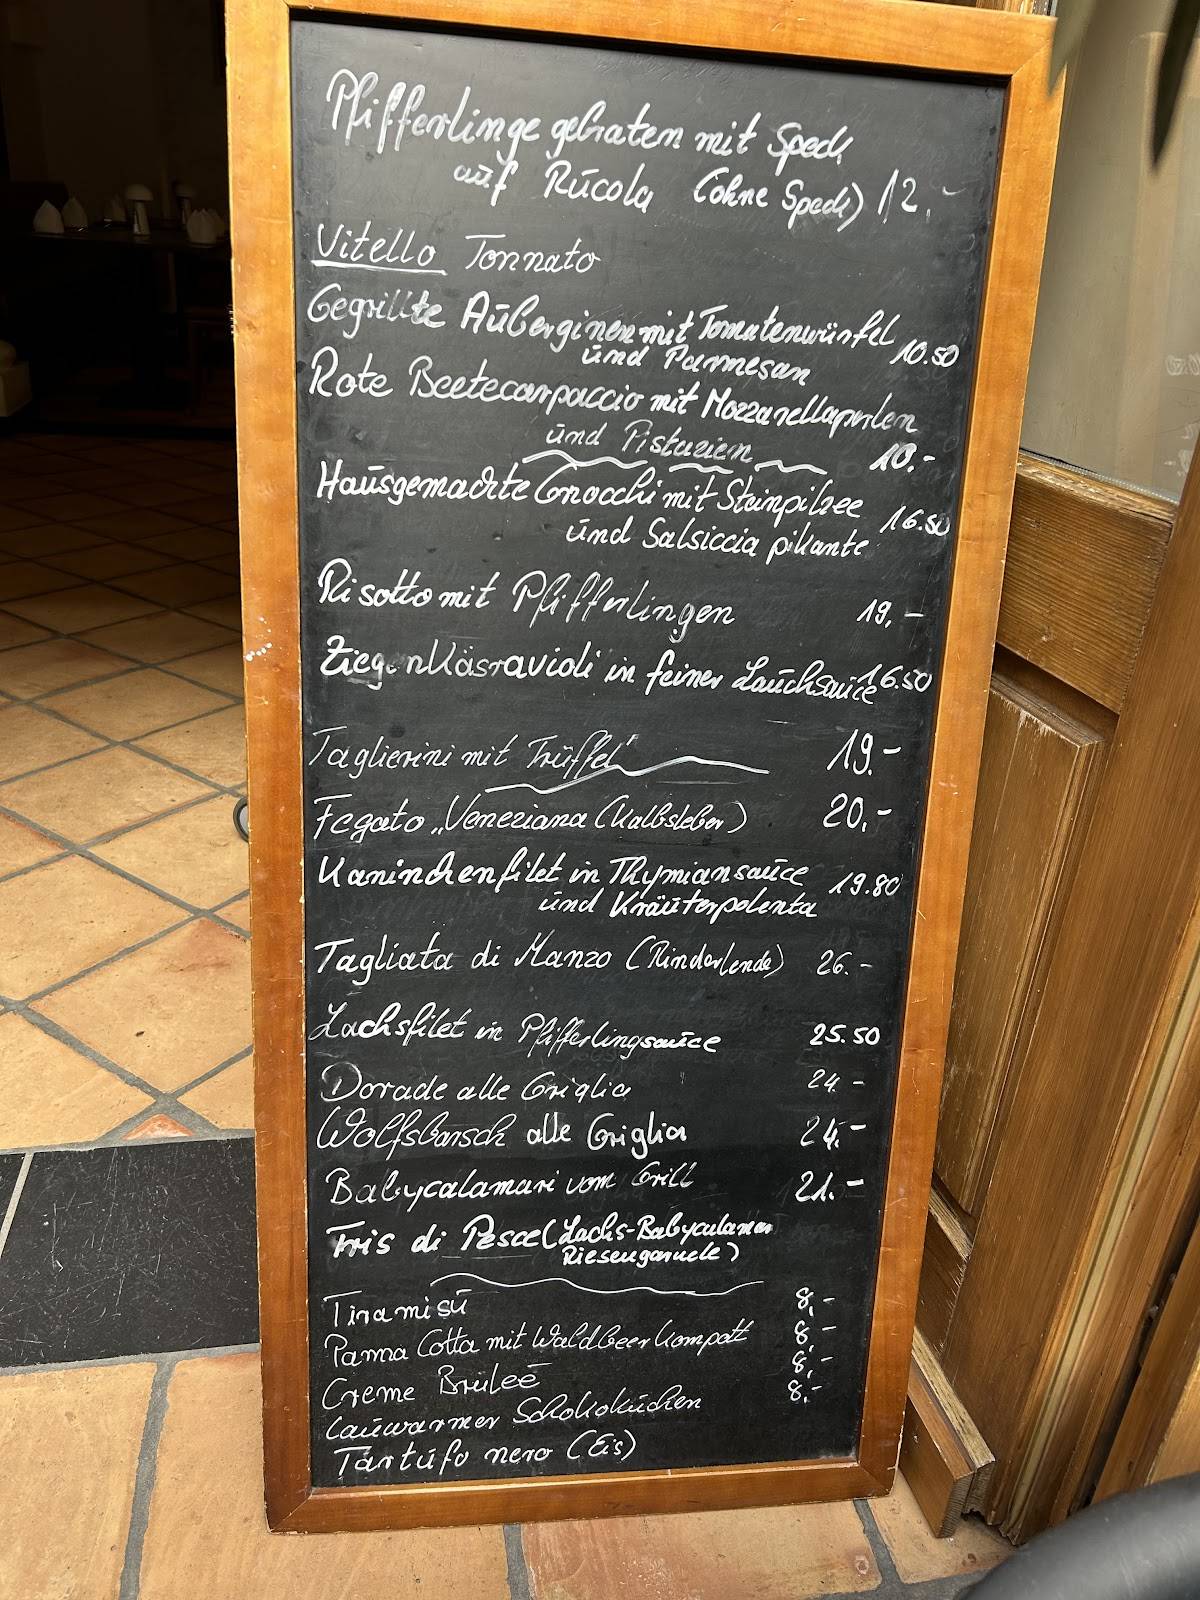 Pfifferlinge gebraten mit Speck
auf Rucola (ohne Speck) 12.-
Vitello Tonnato
Gegrillte Auberginen mit Tomatenwürfel
und Parmesan 10.50
Rote Beetecarpaccio mit Mozzarellaperlen
und Pistazien 10.-
Hausgemachte Gnocchi mit Steinpilzee 16.50
und Salsiccia pikante
Risotto mit Pfifferlingen 19,-
Ziegenkäseravioli in feiner Lauchsauce 16.50
Taglierini mit Trüffel 19.-
Fegato „Veneziana (Kalbsleber) 20,-
Kaninchenfilet in Thymiansauce 19.80
und Kräuterpolenta
Tagliata di Manzo (Rinderlende) 26.-
Lachsfilet in Pfifferlingsauce 25.50
Dorade alle Griglia 24 -
Wolfsbarsch alle Griglia 24.-
Babycalamari vom Grill 21.-
Tris di Pesce (Lachs-Babycalamar
Riesengarnele)
Tiramisu 8,-
Panna Cotta mit Waldbeerkompott 8,-
Creme Bruleé 8,-
Lauwarmer Schokokuchen 8.-
Tartufo nero (Eis)